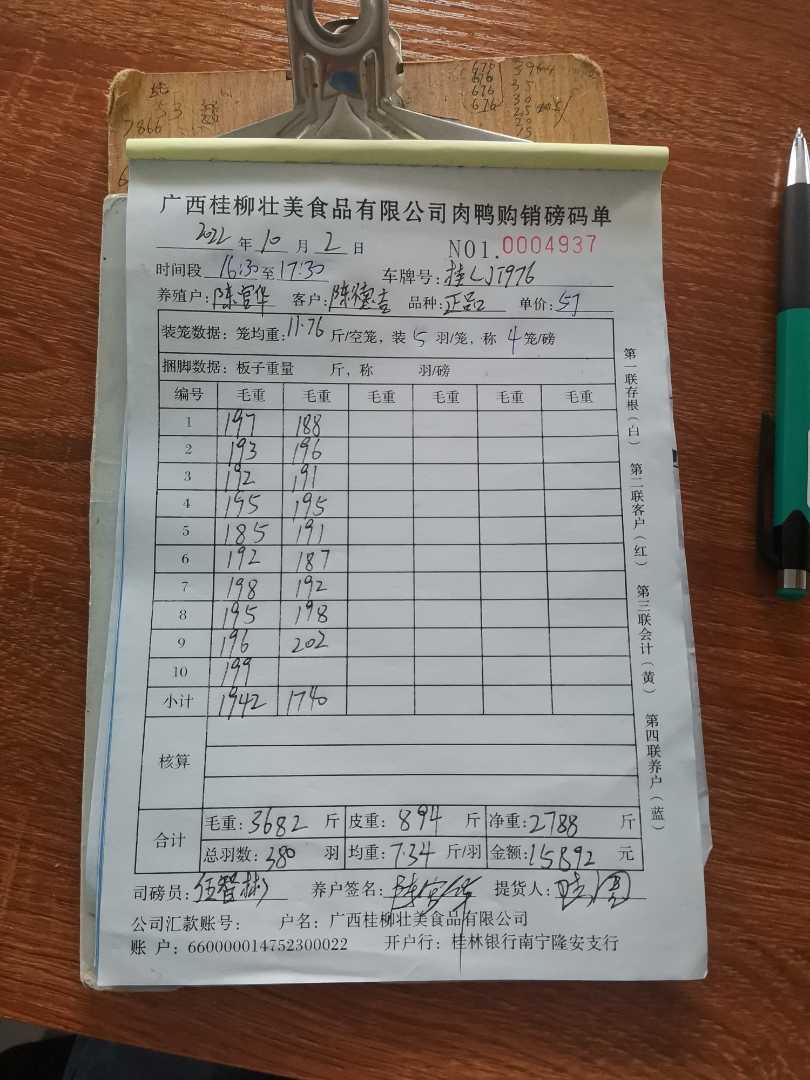 678 3964
676 35
676 30
676 25
20
15
53
7866
广西桂柳壮美食品有限公司肉鸭购销磅码单
2022 年 10 月 2 日 NO1.0004937
时间段 16:30至17:30 车牌号:桂LJT976
养殖户:陈宫华 客户:陈德吉 品种:正品口 单价:57
装笼数据:笼均重:11.76 斤/空笼,装 5 羽/笼,称 4 笼/磅
捆脚数据:板子重量 斤,称 羽/磅
编号 毛重 毛重 毛重 毛重 毛重 毛重
1 197 188
2 193 196
3 192 191
4 195 195
5 185 191
6 192 187
7 198 192
8 195 198
9 196 202
10 199
小计 1942 1740
核算
合计 毛重:3682 斤 皮重:894 斤 净重:2788 斤
总羽数:380 羽 均重:7.34 斤/羽 金额:15892 元
司磅员: 养户签名: 提货人:
公司汇款账号: 户名:广西桂柳壮美食品有限公司
账 户:660000014752300022 开户行:桂林银行南宁隆安支行
第一联存根(白) 第二联客户(红) 第三联会计(黄) 第四联养户(蓝)